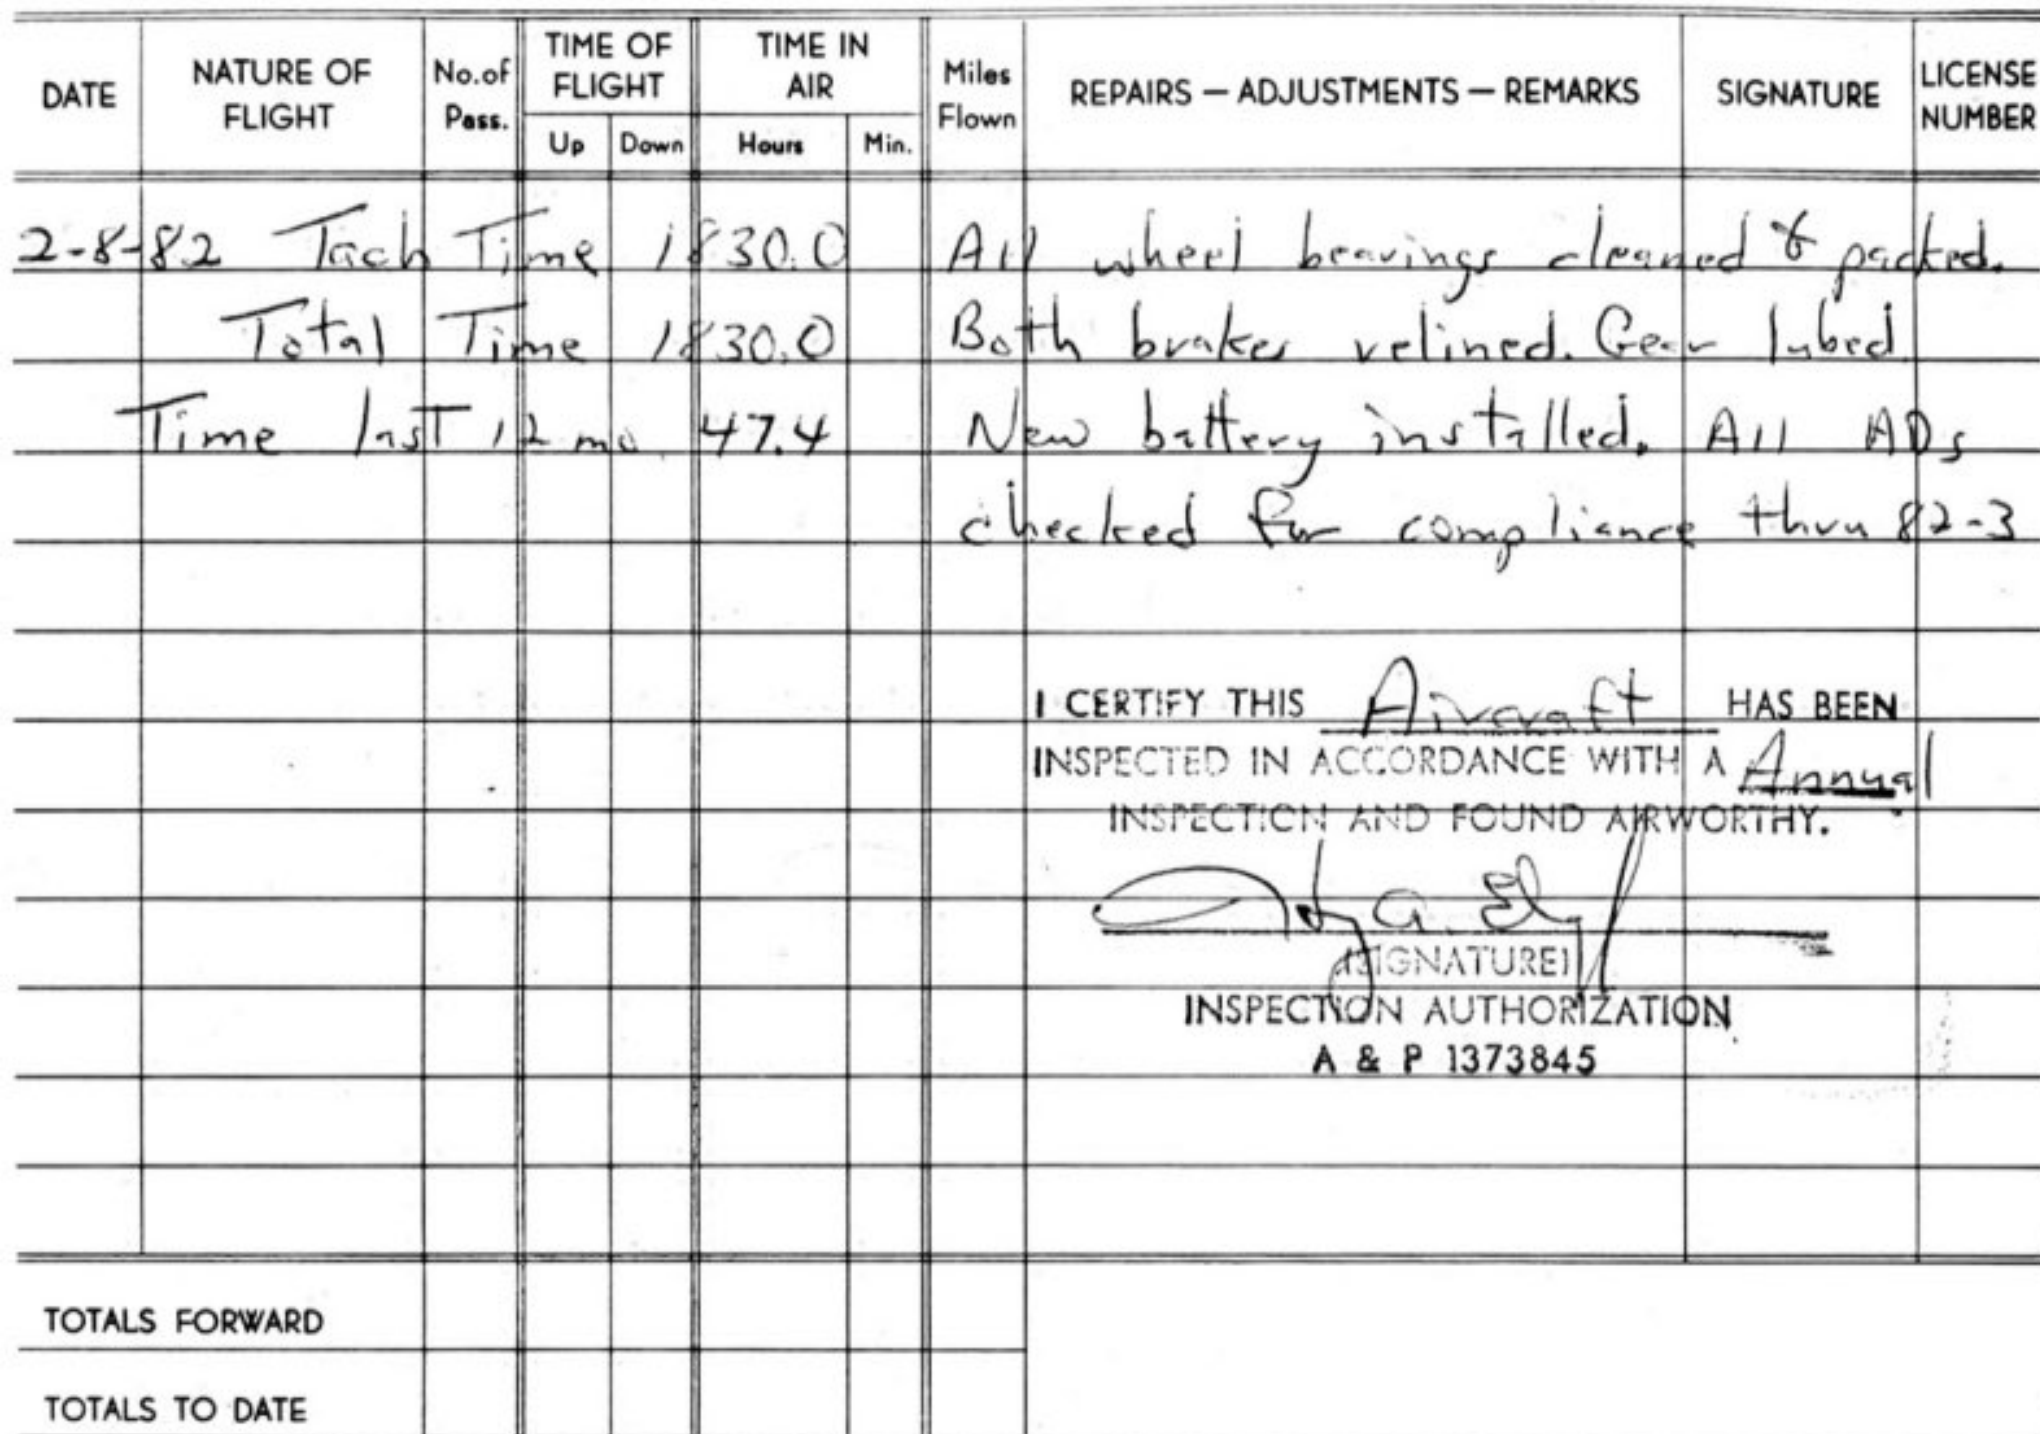 DATE NATURE OF FLIGHT No. of Pass. TIME OF FLIGHT Up Down TIME IN AIR Hours Min. Miles Flown REPAIRS — ADJUSTMENTS — REMARKS SIGNATURE LICENSE NUMBER
2-8-82 Tach Time 1830.0 All wheel bearings cleaned & packed.
Total Time 1830.0 Both brakes relined. Gear lubed
Time last 12 mo. 47.4 New battery installed. All ADs
checked for compliance thru 82-3
I CERTIFY THIS Aircraft HAS BEEN
INSPECTED IN ACCORDANCE WITH A Annual
INSPECTION AND FOUND AIRWORTHY.
(SIGNATURE)
INSPECTION AUTHORIZATION
A & P 1373845
TOTALS FORWARD
TOTALS TO DATE